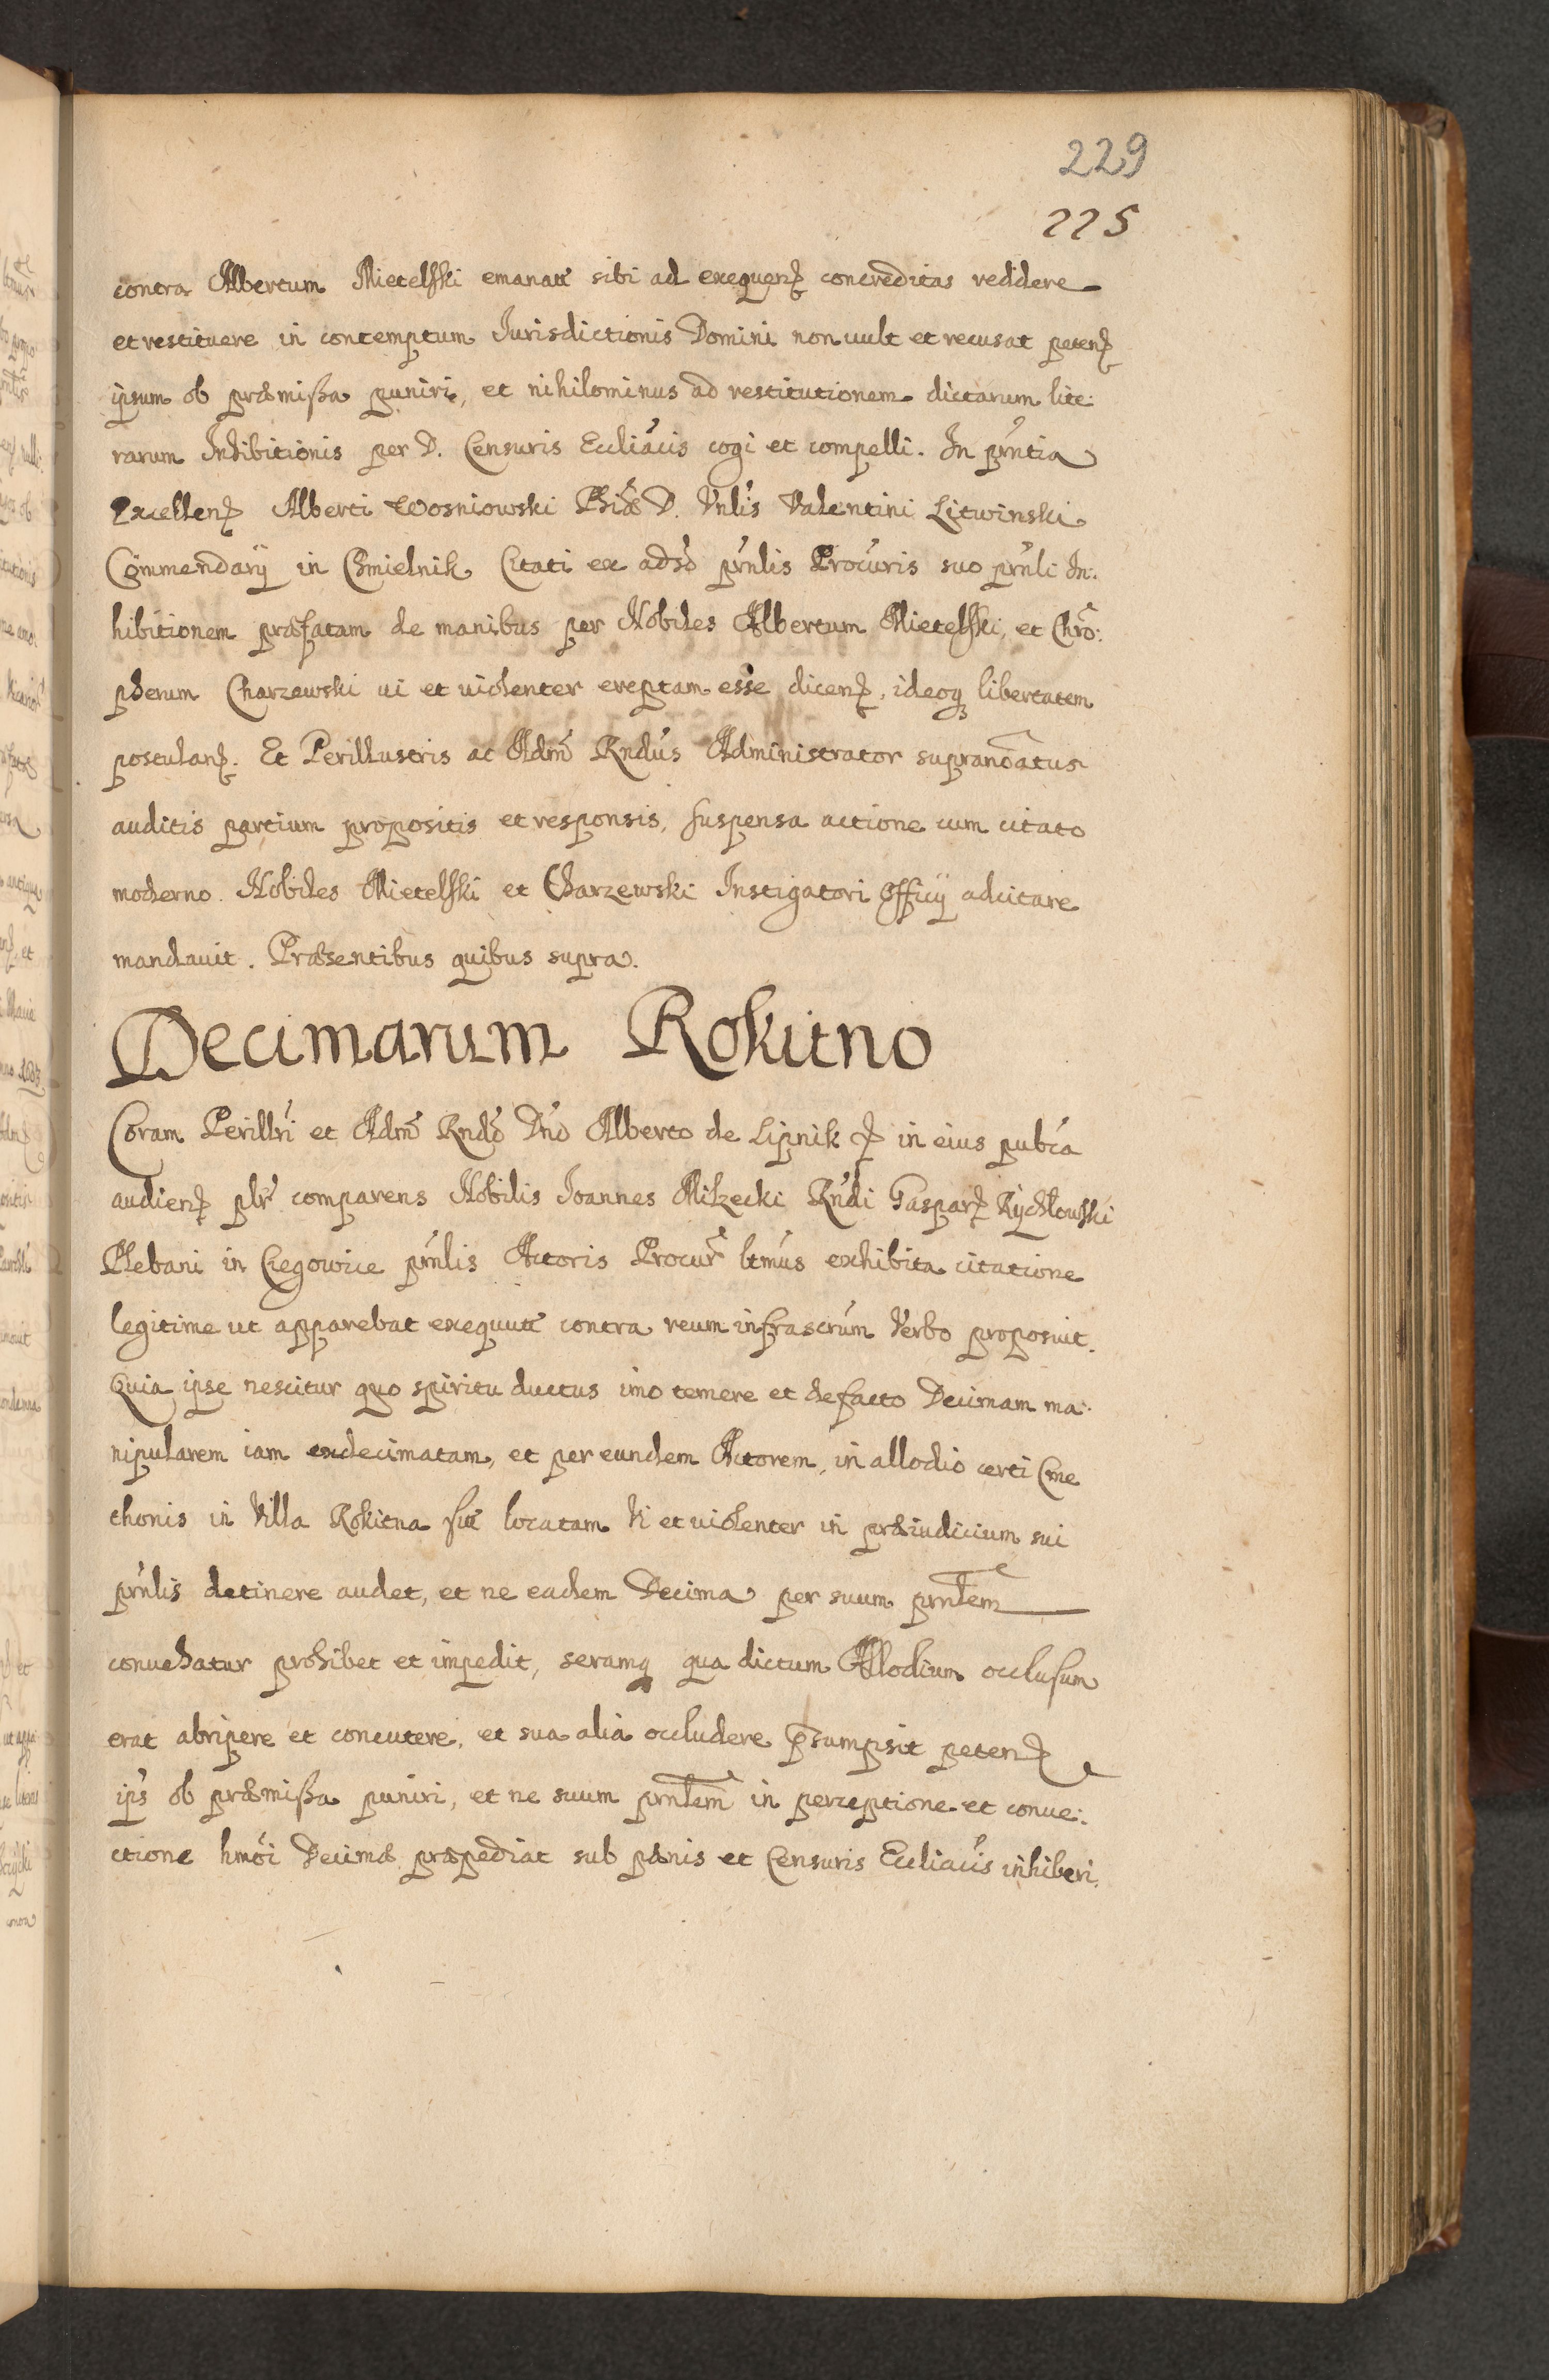 229
225
contra Albertum Mietelski emanatt sibi ad exequen concreditas reddere
et restituere in contemptum Jurisdictionis Domini non uult et recusat peten
ipsum ob præmissa puniri, et nihilominus ad restitutionem dictarum lite:
rarum Inhibitionis per D. Censuris Ecclīacis cogi et compelli. In pñtia
Excellen Alberti Wosniowski Phīæ D. Vnlis Valentini Litwinski
Commendarij in Chmielnik Citati ex adso pñlis Procuris suo pñli In:
hibitionem præfatam de manibus per Nobiles Albertum Mietelski, et Chrō:
pherum Charzewski ui et uiolenter ereptam esse dicen, ideoq libertatem
postulan. Et Perillustris ac Adm Rndus Administrator supranoatus
auditis partium propositis et responsis, suspensa actione cum citato
moderno. Nobiles Mietelski et Charzewski Instigatori Officij adcitare
mandauit. Præsentibus quibus supra.
Decimarum Rokitno
Coram Perillri et Adm Rndo Dno Alberto de Lipnik in eius pubca
audien plr comparens Nobilis Joannes Milzecki Rndi Gaspar Rychłowski
Plebani in Ciegowice pñlis Actoris Procur ltmus exhibita citatione
legitime ut apparebat exequutt contra reum infrascrum Verbo proposuit.
Quia ipse nescitur quo spiritu ductus imo temere et de facto Decimam ma:
nipularem iam exdecimatam, et per eundem Actorem, in allodio certi Cme
thonis in Villa Rokitna locatam Vi et uiolenter in præiudicium sui
pñlis detinere audet, et ne eadem Decima per suum pñlem
conuehatur prohibet et impedit, seramq qua dictum Allodium occlusum
erat abripere et concutere, et sua alia occludere p̄sumpsit peten
ips ob præmissa puniri, et ne suum pñlem in perceptione et conue:
ctione hmoi Decimæ præpediat sub pænis et Censuris Ecclīacis inhiberi.